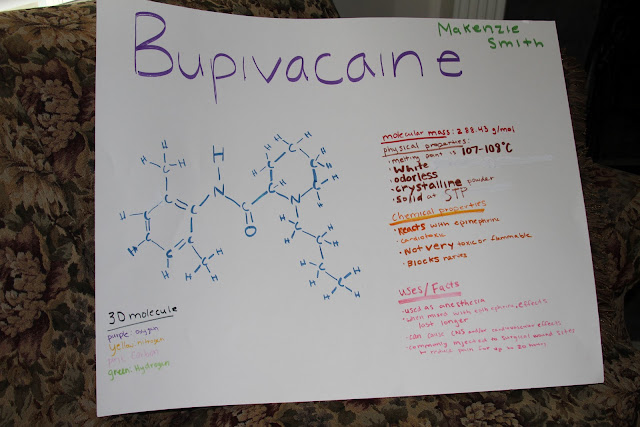 Bupivacaine
Makenzie
Smith
molecular mass: 288.43 g/mol
physical properties:
• melting point is 107-108°C
• White
• odorless
• crystalline powder
• solid at STP
Chemical properties
• Reacts with epinephrine
• cardiotoxic
• Not very toxic or flammable
• Blocks nerves
Uses/Facts
• used as anesthesia
• when mixed with epinephrine, effects
last longer
• can cause CNS and/or cardiovascular effects
• commonly injected to surgical wound sites
to reduce pain for up to 20 hours
3D molecule
purple: oxygen
yellow: nitrogen
pink: Carbon
green: Hydrogen